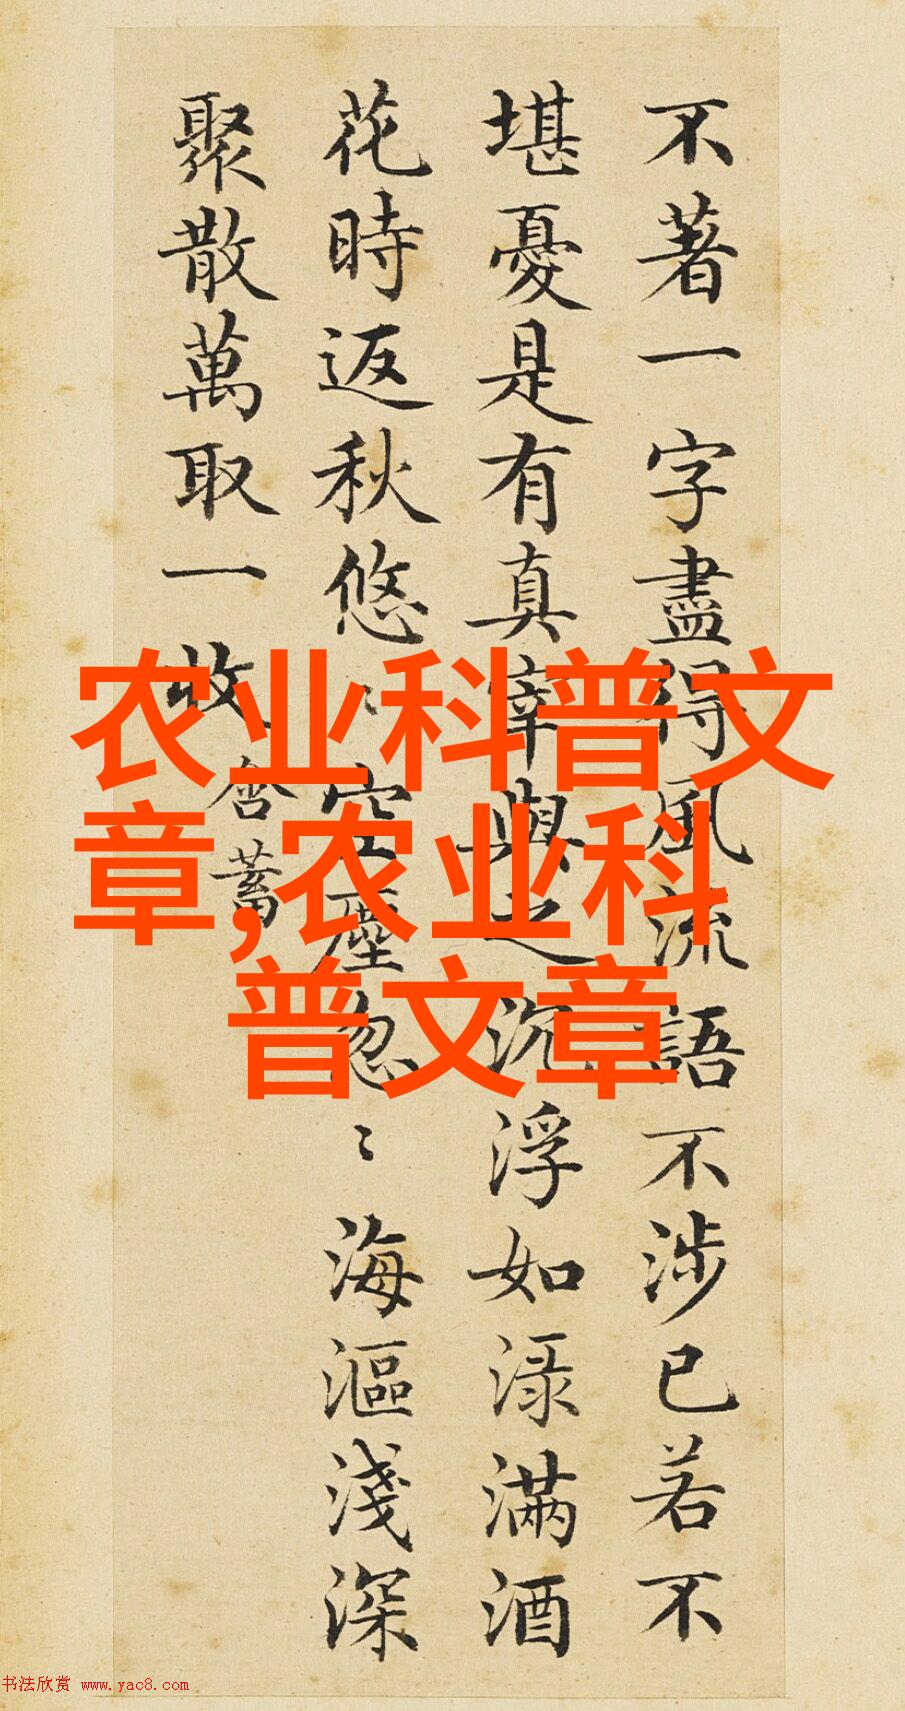 不著一字盡得風流語不涉已若不
堪憂是有真宰與之沉浮如淥滿酒
花時返秋悠〻空塵忽〻海漚淺深
聚散萬取一收
含蓄
农业科普文
章,农业科
普文章
书法欣赏 www.yac8.com